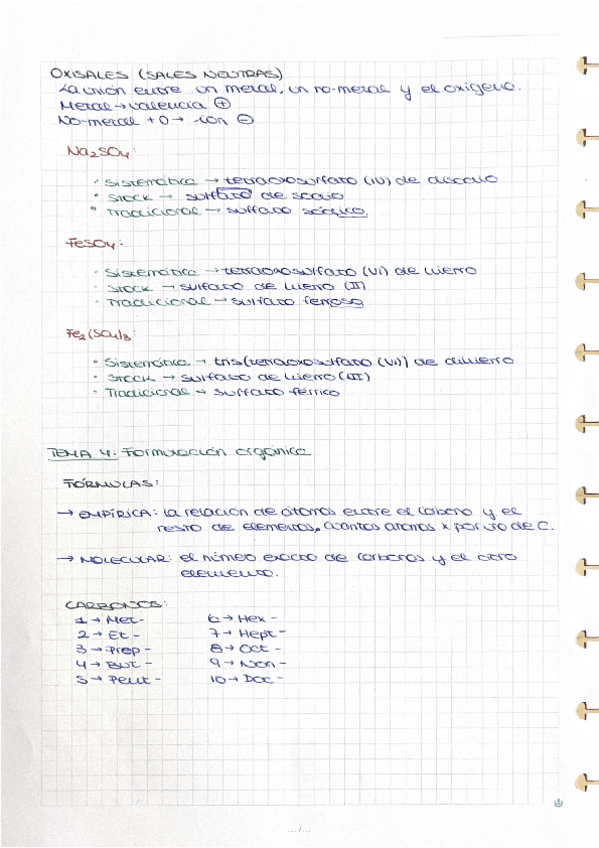 OXISALES (SALES NEUTRAS)
La unión entre un metal, un no-metal y el oxígeno.
Metal → valencia ⊕
No-metal + O → ion ⊖
Na₂SO₄:
· Sistemática → tetraoxosulfato (IV) de disodio
· Stock → sulfato de sodio
· Tradicional → sulfato sódico
FeSO₄:
· Sistemática → tetraoxosulfato (VI) de hierro
· Stock → sulfato de hierro (II)
· Tradicional → sulfato ferroso
Fe₂(SO₄)₃:
· Sistemática → tris(tetraoxosulfato (VI)) de dihierro
· Stock → sulfato de hierro (III)
· Tradicional → sulfato férrico
TEMA 4: Formulación orgánica
FÓRMULAS:
→ EMPÍRICA: la relación de átomos entre el carbono y el
resto de elementos, cuantos atomos x por de C.
→ MOLECULAR: el número exacto de carbonos y el otro
elemento.
CARBONOS:
1 → Met- 6 → Hex-
2 → Et- 7 → Hept-
3 → Prop- 8 → Oct-
4 → But- 9 → Non-
5 → Pent- 10 → Dec-